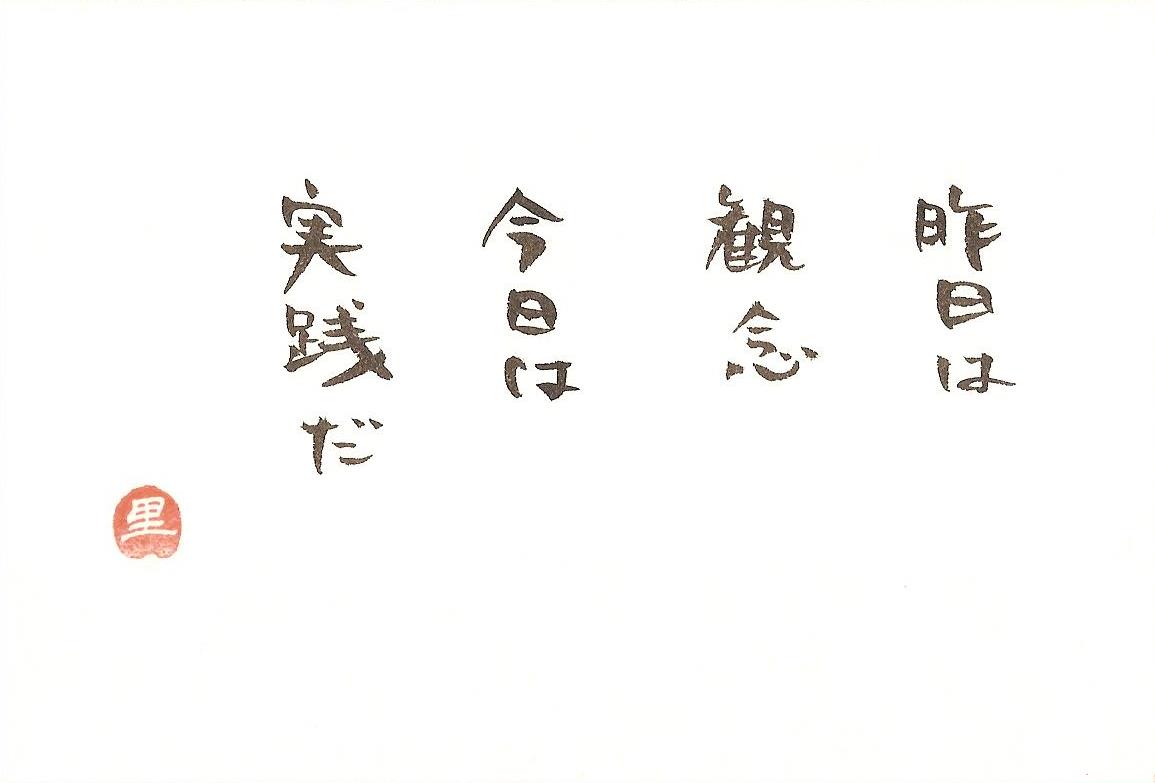 昨日は
観念
今日は
実践だ
里